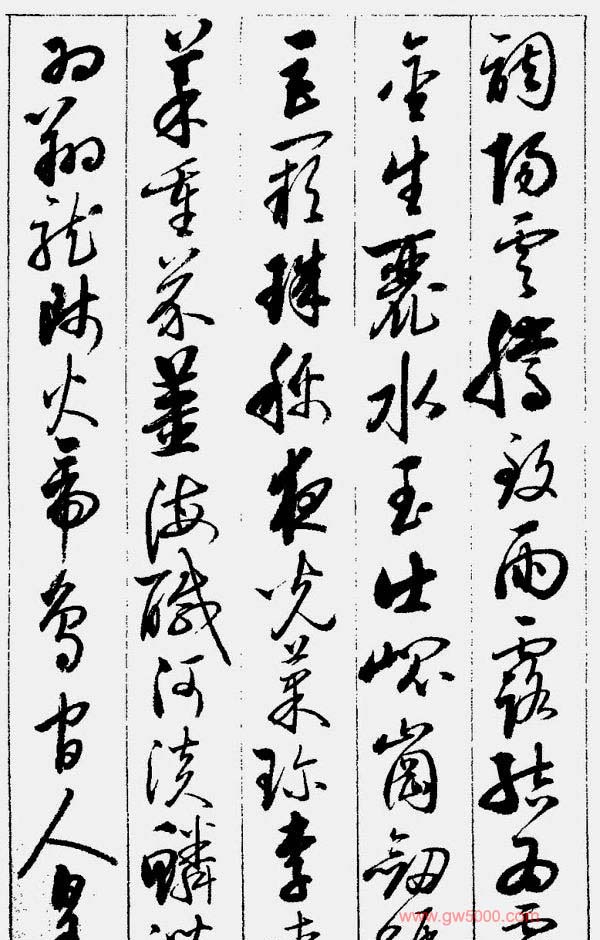 調陽雲騰致雨露結為
金生麗水玉出崐崗劍
巨闕珠稱夜光菓珍李
菜重芥薑海醎河淡鱗
羽翔龍師火帝鳥官人皇
www.gw5000.com